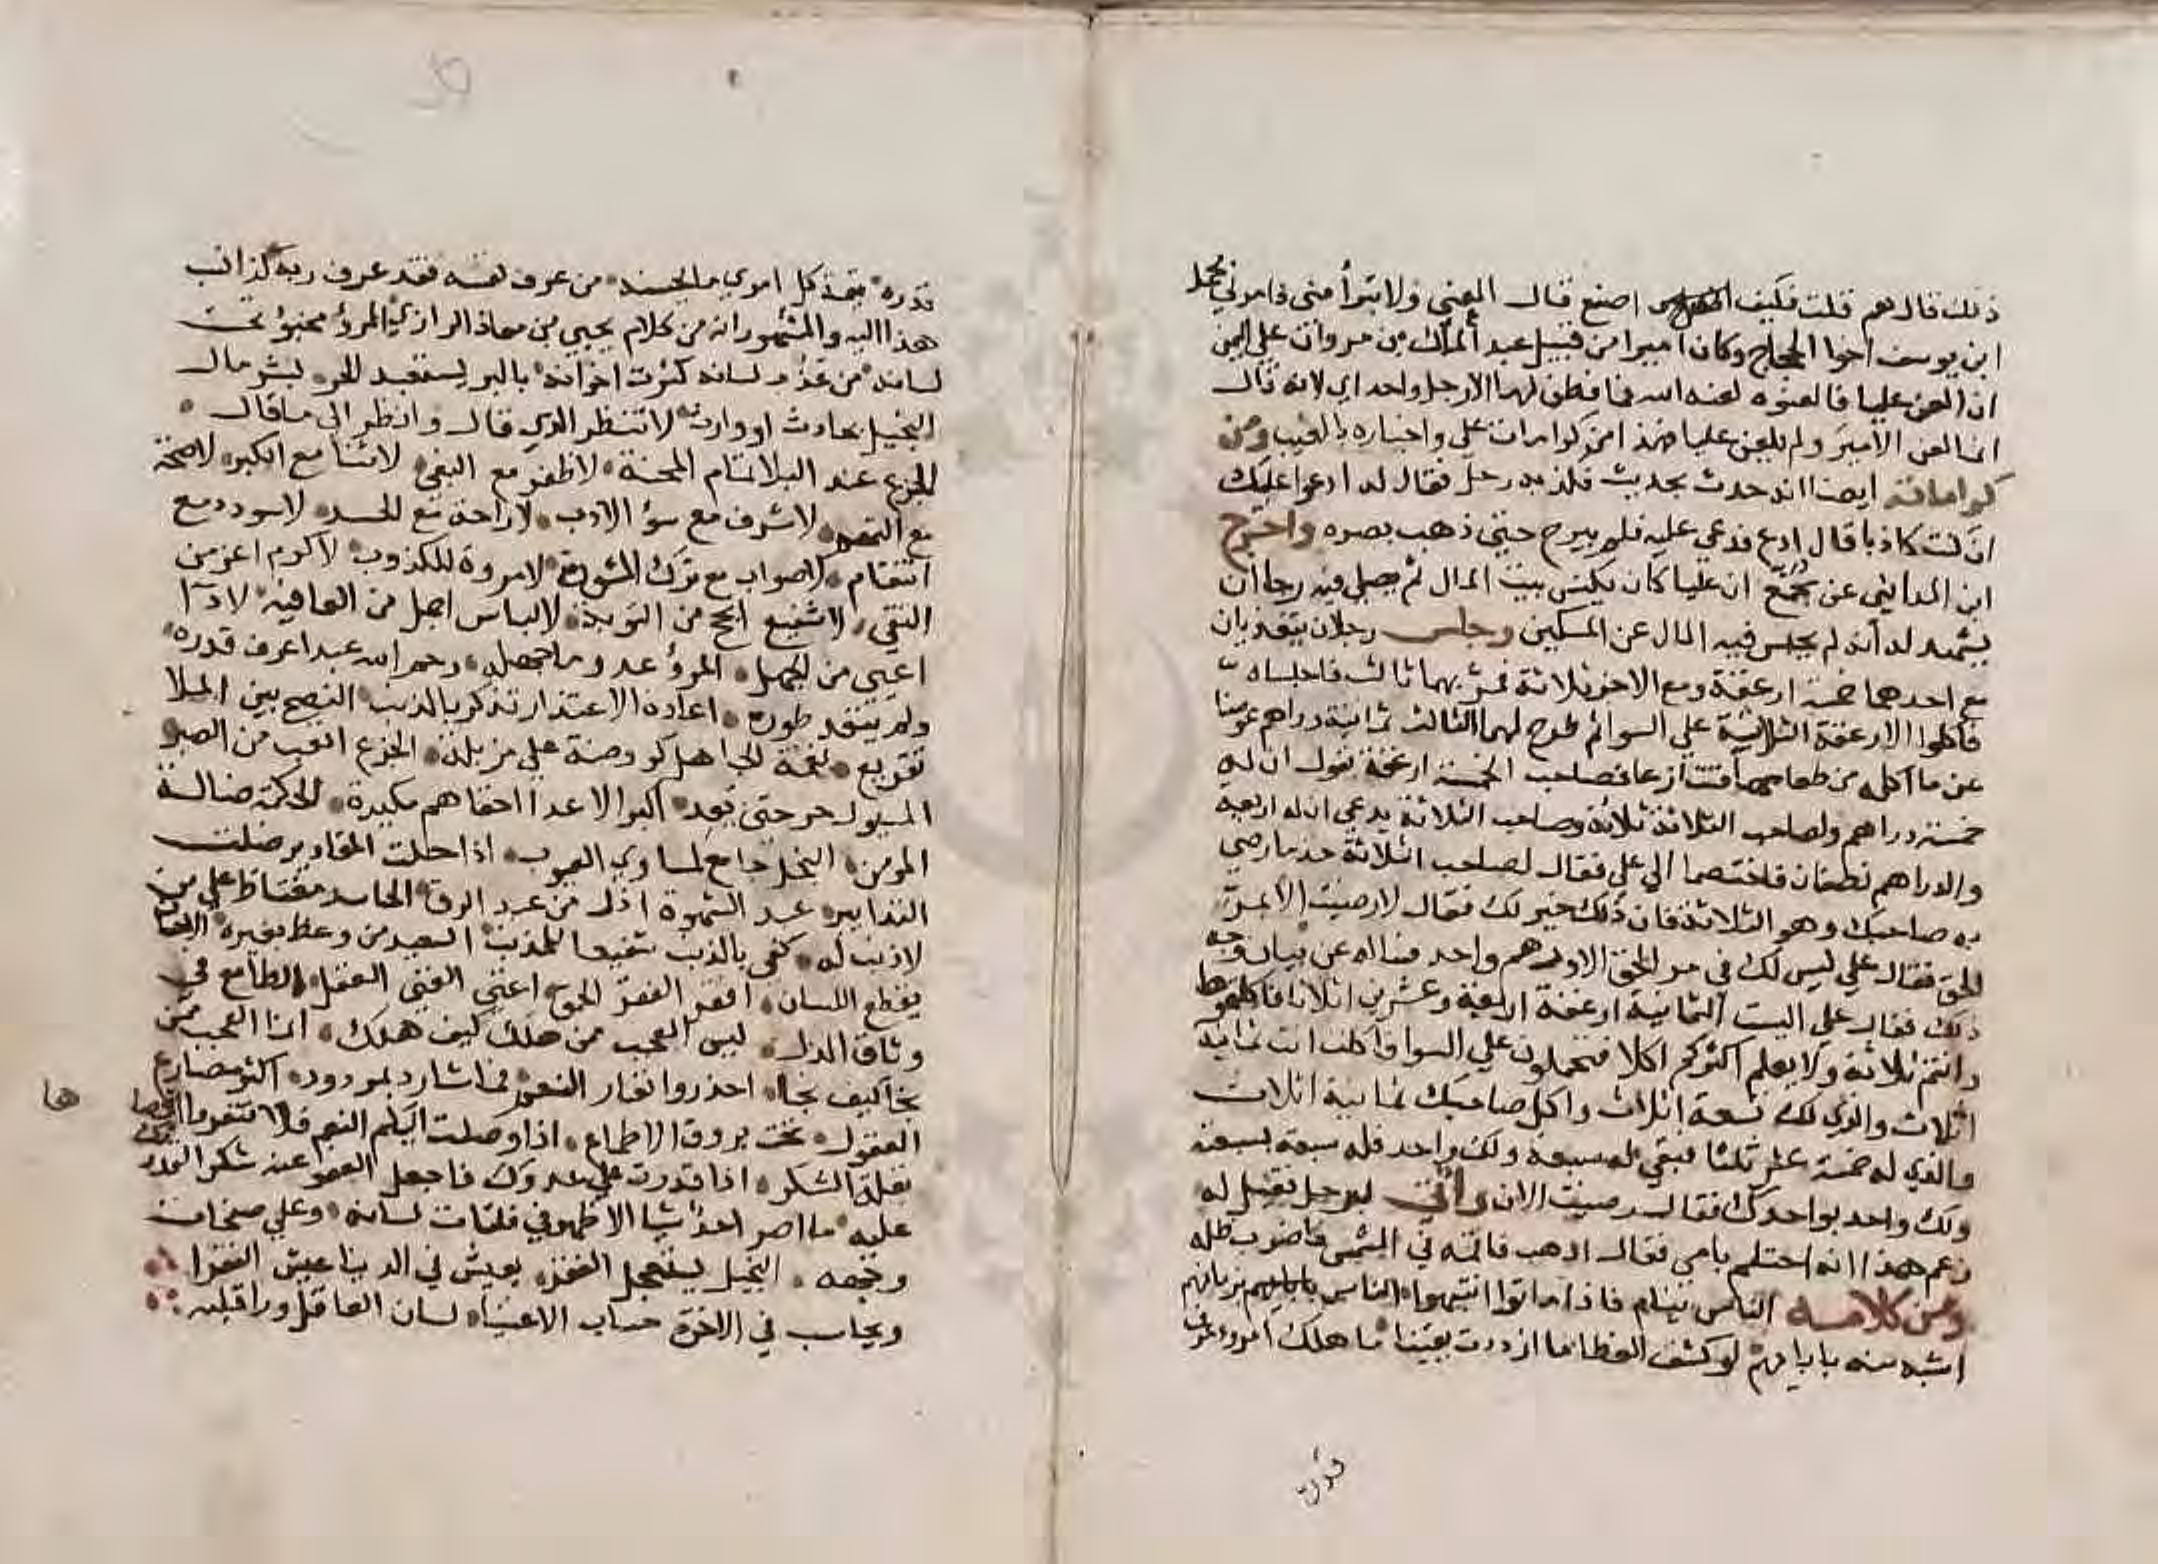 ذلك قال نعم قلت فكيف اصنع قال العني ولا تتبرأ مني فامرني محمد
ابن يوسف اخوا الحجاج وكان اميرا من قبيل عبد الملك بن مروان علي اليمن
ان العن عليا فالعنوه لعنه الله فما فطن لها الا رجل واحد اي لانه قال
انما لعن الامير ولم يلعن عليا فهذا من كرامات علي واخباره بالغيب ومن
كراماته ايضا انه حدث بحديث فكذبه رجل فقال له ادعوا عليك
ان كنت كاذبا قال ادع فدعي عليه فلم يبرح حتي ذهب بصره واخرج
ابن المدايني عن مجمع ان عليا كان يكنس بيت المال ثم يصلي فيه رجا ان
يشهد له انه لم يحبس فيه المال عن المسكين وجلس رجلان يتغديان
مع احدهما خمسة ارغفة ومع الاخر ثلاثة فمر بهما ثالث فاجلساه
فاكلوا الارغفة الثمانية علي السوا ثم طرح لهما الثالث ثمانية دراهم عوضا
عن ما اكله من طعامهما فتنازعا فصاحب الخمسة ارغفة يقول ان له
خمسة دراهم ولصاحب الثلاثة ثلاثة وصاحب الثلاثة يدعي ان له اربعة
والدراهم نصفان فاختصما الي علي فقال لصاحب الثلاثة خذ ما رضي
به صاحبك وهو الثلاثة فان ذلك خير لك فقال لا رضيت الا بمر
الحق فقال علي ليس لك في مر الحق الا درهم واحد فساله عن بيان وجه
ذلك فقال علي اليست الثمانية ارغفة اربعة وعشرين اثلاثا فاكلتموها
وانتم ثلاثة ولا يعلم اكثركم اكلا فتحملون علي السوا فاكلت انت ثمانية
اثلاث والذي لك تسعة اثلاث واكل صاحبك ثمانية اثلاث
والذي له خمسة عشر ثلثا فبقي له سبعة ولك واحد فله سبعة بسبعة
ولك واحد بواحدك فقال رضيت الان واتي برجل فقيل له
زعم هذا انه احتلم بامي فقال اذهب فاقمه في الشمس فاضرب ظله
ومن كلامه الناس نيام فاذا ماتوا انتبهوا الناس بزمانهم
اشبه منه بابايهم لو كشف الغطا ما ازددت يقينا ما هلك امرؤ عرف
قدره
قدره قيمة كل امري ما يحسنه من عرف نفسه فقد عرف ربه كذا نسب
هذا اليه والمشهور انه من كلام يحيي بن معاذ الرازي المرؤ مخبؤ تحت
لسانه من عذب لسانه كثرت اخوانه بالبر يستعبد الحر بشر مال
البخيل بحادث او وارث لا تنظر الذي قال وانظر الي ما قال
الجزع عند البلا تمام المحنة لا ظفر مع البغي لا ثنا مع الكبر لا صحة
مع لا شرف مع سوء الادب لا راحة مع الحسد لا سودد مع
انتقام لا صواب مع ترك المشورة لا مروة للكذوب لا كرم اعز من
التقي لا شفيع انجح من التوبة لا لباس اجمل من العافية لا داآ
اعيي من الجهل المرؤ عدو ما جهله رحم الله عبدا عرف قدره
ولم يتعد طوره اعادة الاعتذار تذكر بالذنب النصح بين الملا
تقريع نعمة الجاهل كروضة علي مزبلة الجزع اتعب من الصبر
المسيول حر حتي يعد اكبر الاعدا اخفاهم مكيدة الحكمة ضالة
المومن البخل جامع لمساوي العيوب اذا حلت المقادير ضلت
التدابير عبد الشهوة اذل من عبد الرق الحاسد مغتاظ علي من
لا ذنب له كفي بالذنب شفيعا للمذنب السعيد من وعظ بغيره الاحسان
يقطع اللسان افقر الفقر الحمق اغني الغني العقل الطامع في
وثاق الذل ليس العجب ممن هلك كيف هلك انما العجب ممن
نجا كيف نجا احذروا نفار النعم فما شارد بمردود اكثر مصارع
العقول تحت بروق الاطماع اذا وصلت اليكم النعم فلا تنفروا اقصاها
بقلة الشكر اذا قدرت علي عدوك فاجعل العفو عنه شكر القدرة
عليه ما اضمر احد شيا الا ظهر في فلتات لسانه وعلي صفحات
وجهه البخيل يستعجل الفقر يعيش في الدنيا عيش الفقرا
ويحاسب في الاخرة حساب الاغنيا لسان العاقل ورا قلبه
ها